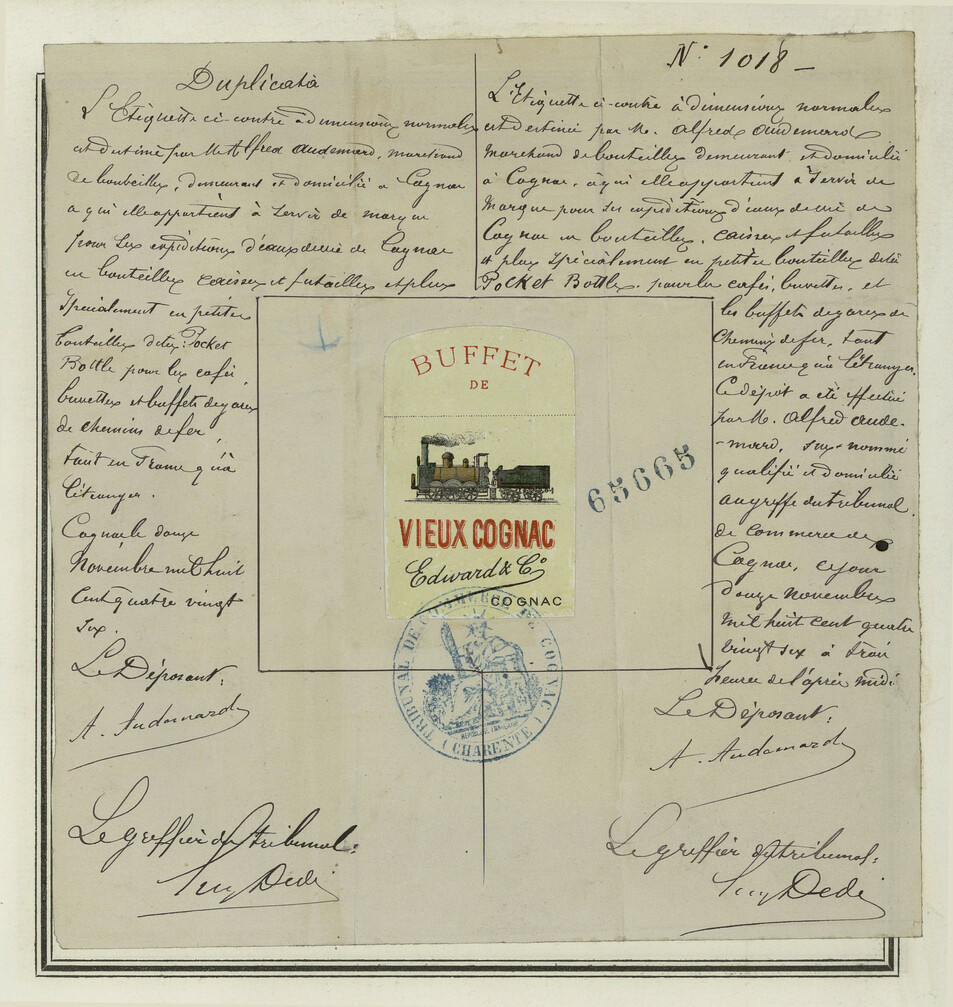 Duplicata
L'Etiquette ci-contre à dimensions normales
est destinée par M. Alfred Audemard, marchand
de bouteilles, demeurant et domicilié à Cognac
a qui elle appartient à servir de marque
pour ses expéditions d'eaux de vie de Cognac
en bouteilles caisses et futailles et plus
spécialement en petites
bouteilles dites: Pocket
Bottle pour les cafés,
buvettes et buffets de gares
de chemins de fer,
tant en France qu'à
l'étranger.
Cognac le douze
Novembre mil huit
cent quatre vingt
six.
Le Déposant:
A. Audemard
Le greffier du tribunal:
N° 1018 –
L'Etiquette ci-contre à dimensions normales
est destinée par M. Alfred Audemard
Marchand de bouteilles demeurant et domicilié
à Cognac, à qui elle appartient à servir de
Marque pour ses expéditions d'eaux de vie de
Cognac en bouteilles, caisses et futailles
et plus spécialement en petites bouteilles dites
Pocket Bottles pour les cafés, buvettes, et
les buffets de gares de
Chemins de fer, tant
en France qu'à l'étranger.
Ce dépôt a été effectué
par M. Alfred Aude-
-mard, sus-nommé
qualifié et domicilié
au greffe du tribunal
de commerce de
Cognac, ce jour
douze novembre
mil huit cent quatre
vingt six à trois
heures de l'après midi
Le Déposant:
A. Audemard
Le greffier du tribunal:
BUFFET
DE
VIEUX COGNAC
Edward & Co
COGNAC
65665
TRIBUNAL DE COMMERCE DE COGNAC
(CHARENTE)
RÉPUBLIQUE FRANÇAISE